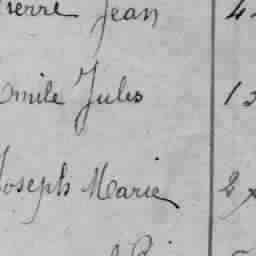 Pierre Jean 4
Emile Jules 12
Joseph Marie 2